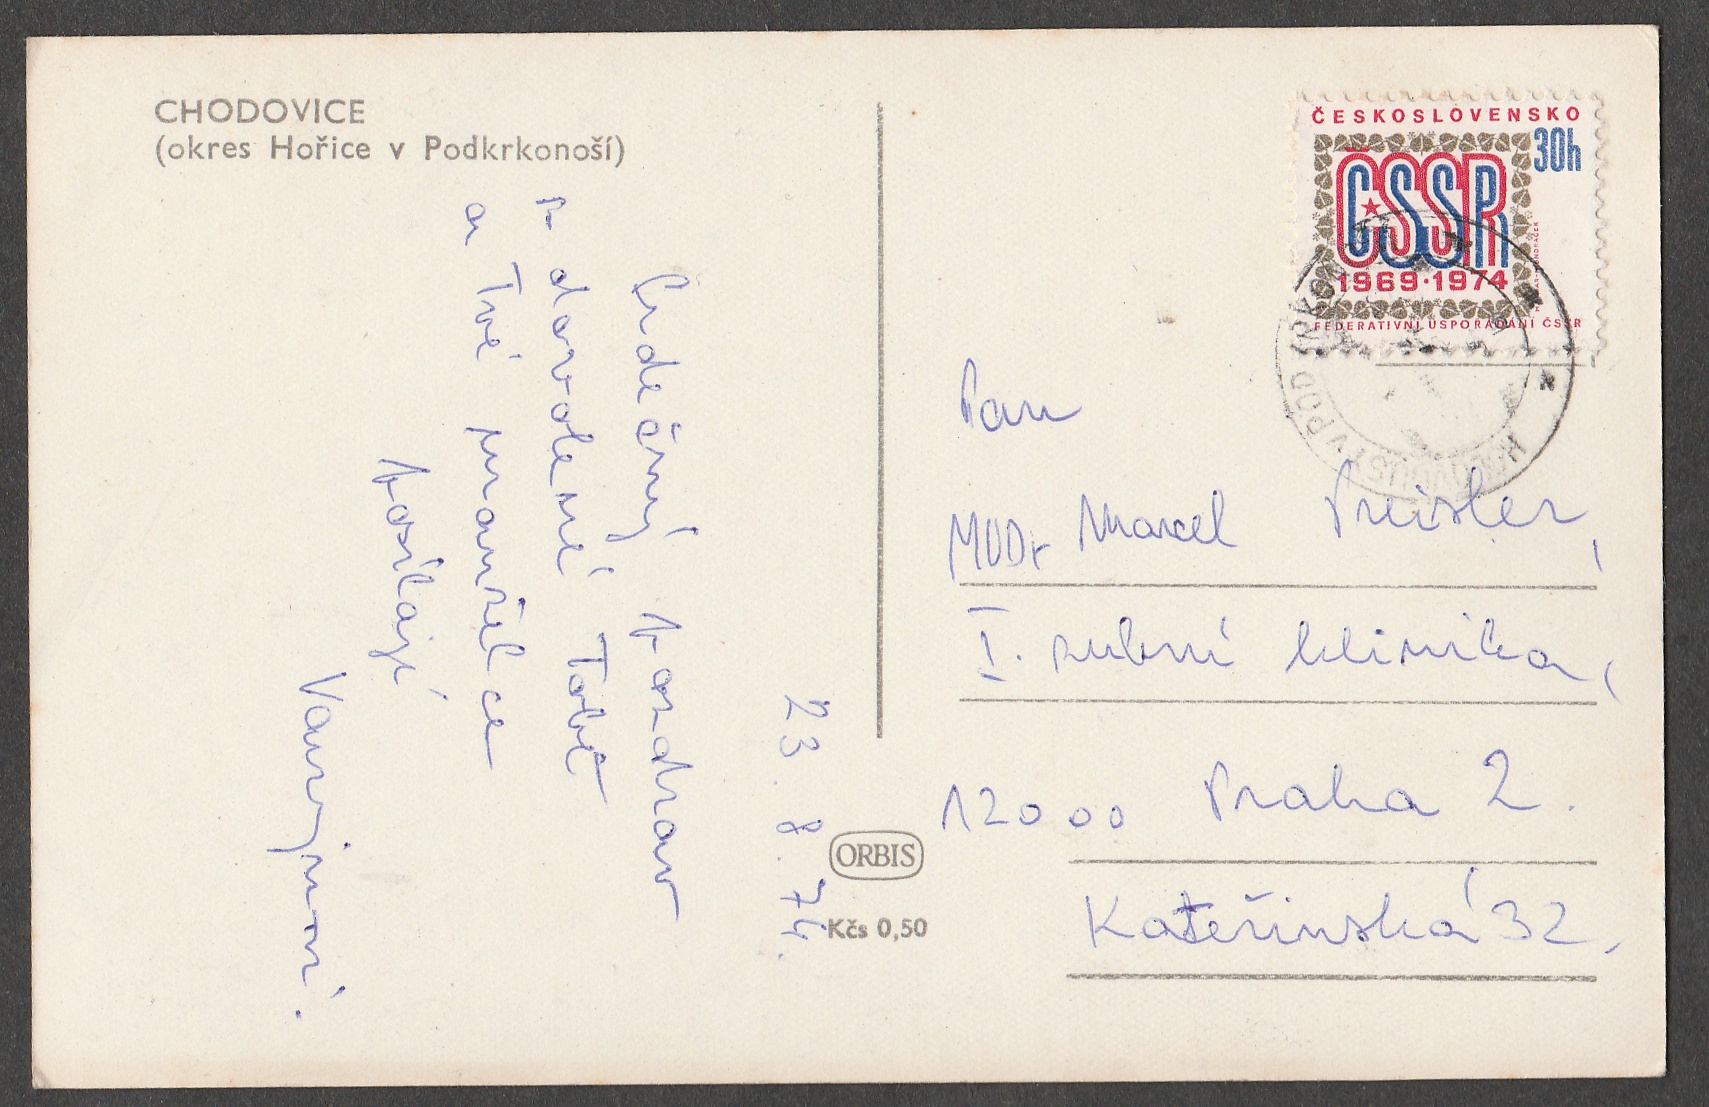 CHODOVICE
(okres Hořice v Podkrkonoší)
23. 8. 74.
Srdečný pozdrav
z dovolené Tobě
a Tvé manželce
posílají
ORBIS
Kčs 0,50
ČESKOSLOVENSKO
30h
ČSSR
1969·1974
FEDERATIVNÍ USPOŘÁDÁNÍ ČSSR
Pan
MUDr Marcel Preisler,
I. zubní klinika,
12000 Praha 2.
Kateřinská 32,